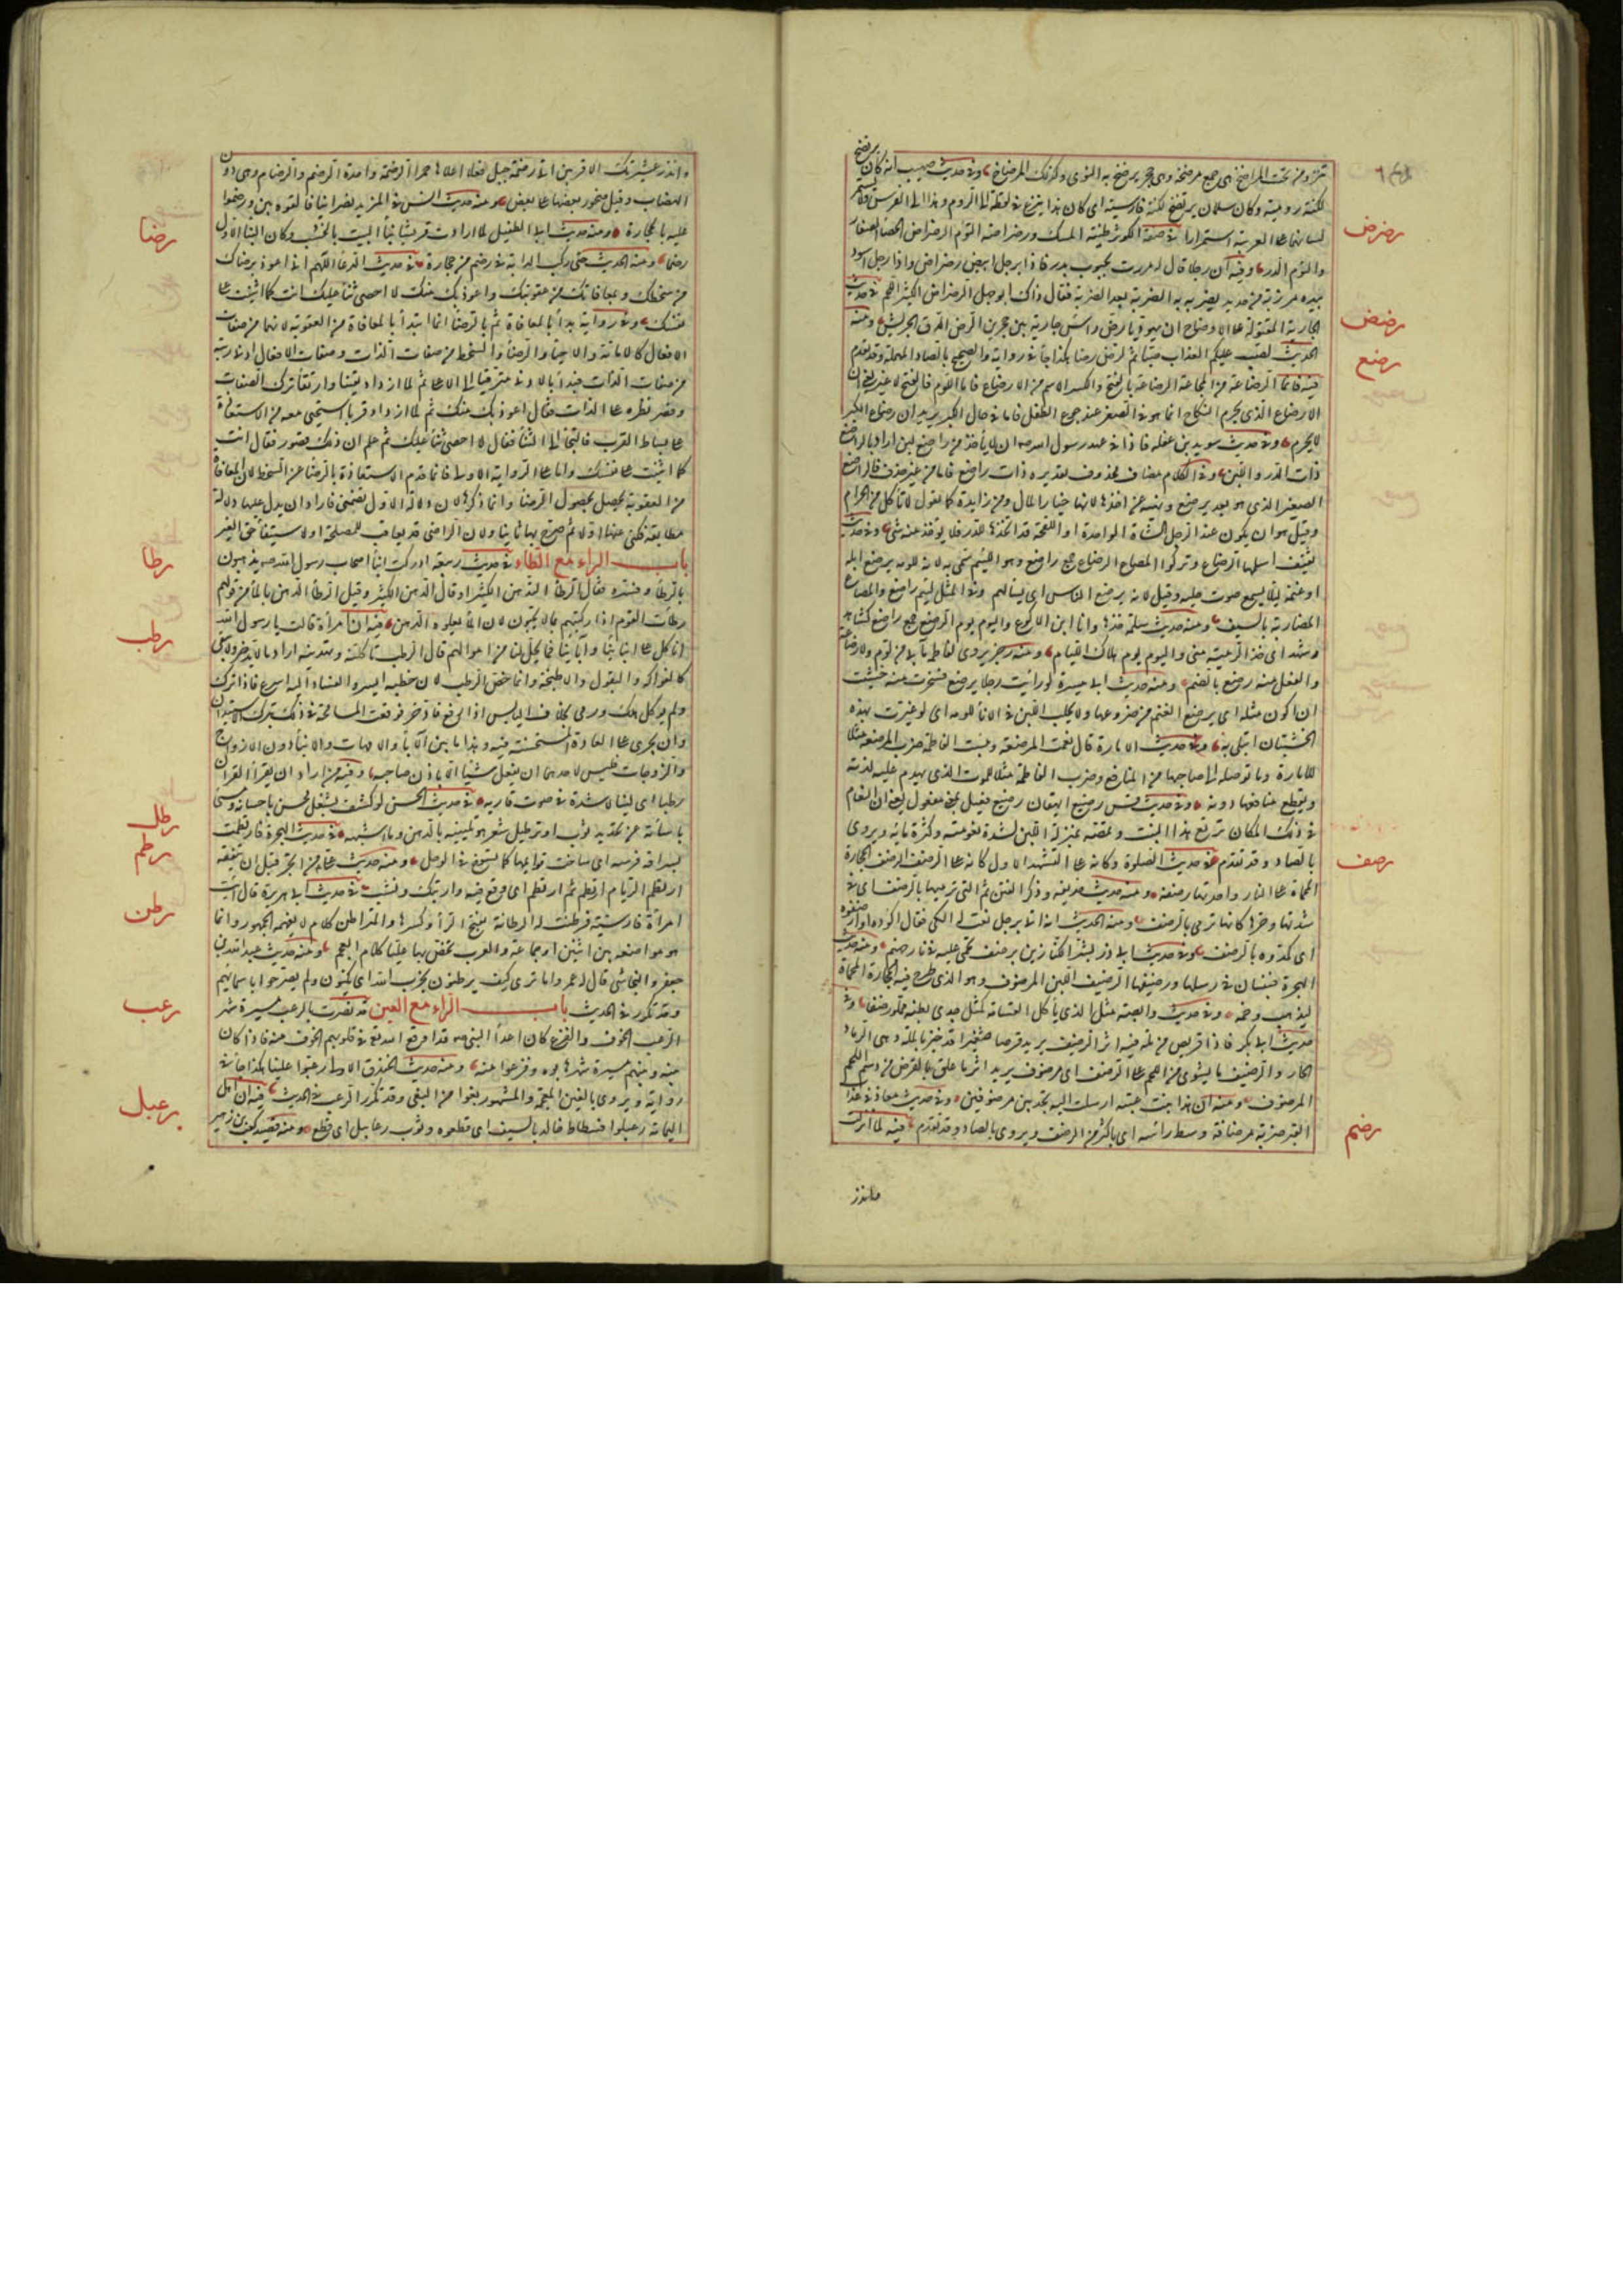 تنزو من تحت المراضخ هى جمع مرضخة وهى حجر يرضخ به النوى وكذلك المرضاخ وفى حديث صهيب انه كان يرتضخ
لكنة رومية وكان سلمان يرتضخ لكنة فارسية اى كان هذا ينزع فى لفظه الى الروم وهذا الى الفرس
لسانهما على العربية استمرارا فى صفة الكوثر طينته المسك ورضراضه التوم الرضراض الحصا الصغار
رضرض
والتوم الدر وفيه ان رجلا قال له مررت بجبوب بدر فاذا برجل ابيض رضراض واذا رجل اسود
بيده مرزبة من حديد يضربه بها الضربة بعد الضربة فقال ذاك ابو جهل الرضراض الكثير اللحم فى حديث
الجارية المقتولة على الاوضاح ان يهوديا رض راس جارية بين حجرين الرض الدق الجريش ومنه
رضض
الحديث لصب عليكم العذاب صبا ثم لرض رضا هكذا جاء فى رواية والصحيح بالصاد المهملة وقد تقدم
فيه فانما الرضاعة من المجاعة الرضاعة بالفتح والكسر الاسم من الارضاع فاما من اللوم فالفتح لا غير يعنى ان
رضع
الارضاع الذى يحرم النكاح انما هو فى الصغر عند جوع الطفل فاما فى حال الكبر يريد ان رضاع الكبير
لا يحرم وفى حديث سويد بن غفلة فاذا فى عهد رسول الله ان لا ياخذ من راضع لبن اراد بالراضع
ذات الدر واللبن وفى الكلام مضاف محذوف تقديره ذات راضع فاما من غير حذف فالراضع
الصغير الذى هو بعد يرضع ونهيه عن اخذها لانها خيار المال ومن زائدة كما تقول لا تاكل من الحرام
وقيل هو ان يكون عند الرجل الشاة الواحدة او اللقحة قد اتخذها للدر فلا يوخذ منه شى وفى حديث
ثقيف اسلمها الرضاع وتركوا المصاع الرضاع جمع راضع وهو اللئيم سمى به لانه للومه يرضع ابله
او غنمه ليلا ليلا يسمع صوت حلبه وقيل لانه يرضع الناس اى يسالهم وفى المثل لئيم راضع والمصاع
المضاربة بالسيف ومنه حديث سلمة خذها وانا ابن الاكوع واليوم يوم الرضع جمع راضع كشاهد
وشهد اى خذ الرمية منى واليوم يوم هلاك اللئام ومنه رجز يروى لفاطمة ما بى من لوم ولا رضاعة
والفعل منه رضع بالضم ومنه حديث ابى ميسرة لو رايت رجلا يرضع فسخرت منه خشيت
ان اكون مثله اى يرضع الغنم من ضروعها ولا يحلب اللبن فى الاناء للومه اى لو عيرت بهذا
الخشيت ان ابتلى به وفى حديث الامارة قال نعمت المرضعة وبئست الفاطمة ضرب المرضعة مثلا
للامارة وما توصله الى صاحبها من المنافع وضرب الفاطمة مثلا للموت الذى يهدم عليه لذته
ويقطع منافعها دونه وفى حديث قس رضيع ايهقان رضيع فعيل بمعنى مفعول يعنى ان النعام
فى ذلك المكان ترتع هذا النبت وتمصه بمنزلة اللبن لشدة نعومته وكثرة مائه ويروى
بالصاد وقد تقدم فى حديث الصلوة وكان فى التشهد الاول كانه على الرضف الرضف الحجارة
رضف
المحماة على النار واحدتها رضفة ومنه حديث حذيفة وذكر الفتن ثم التى تليها ترمى بالرضف اى فى
شدتها وحرها كانها ترمى بالرضف ومنه الحديث انه اتى برجل نعت له الكى فقال اكووه او ارضفوه
اى كمدوه بالرضف وفى حديث ابى ذر بشر الكنازين برضف يحمى عليه فى نار جهنم ومنه حديث
الهجرة فيبيتان فى رسلها ورضيفها الرضيف اللبن المرضوف وهو الذى طرح فيه الحجارة المحماة
ليذهب وخمه وفى حديث وابصة مثل الذى ياكل القسامة كمثل جدى بطنه مملو رضفا وفى
حديث ابى بكر فاذا قريص من ملة فيه اثر الرضيف يريد قرصا صغيرا قد خبز بالملة وهى الرماد
الحار والرضيف ما يشوى من اللحم على الرضف اى مرضوف يريد اثر ما علق بالقرص من دسم اللحم
المرضوف ومنه ان هندا بنت عتبة ارسلت اليه بجديين مرضوفين وفى حديث معاذ فى عذاب
القبر ضربه بمرضافة وسط راسه اى بالة من الرضف ويروى بالصاد وقد تقدم فيه لما نزلت
رضم
وانذر
وانذر عشيرتك الاقربين اتى رضمة جبل فعلا اعلاها حجرا الرضمة واحدة الرضم والرضام وهى دون
الهضاب وقيل صخور بعضها على بعض ومنه حديث انس فى المرتد نصرانيا فالقوه بين ورضموا
عليه بالحجارة ومنه حديث ابى الطفيل لما ارادت قريش بناء البيت بالخشب وكان البناء الاول
رضما ومنه الحديث حتى ركز الراية فى رضم من حجارة فى حديث الدعاء اللهم انى اعوذ برضاك
رضا
من سخطك وبمعافاتك من عقوبتك واعوذ بك منك لا احصى ثناء عليك انت كما اثنيت على
نفسك وفى رواية بدا بالمعافاة ثم بالرضا انما ابتدا بالمعافاة من العقوبة لانها من صفات
الافعال كالاماتة والاحياء والرضا والسخط من صفات الذات وصفات الافعال ادنى رتبة
من صفات الذات فبدا بالادنى مترقيا الى الاعلى ثم لما ازداد يقينا وارتقا ترك الصفات
وقصر نظره على الذات فقال اعوذ بك منك ثم لما ازداد قربا استحيى معه من الاستعاذة
على بساط القرب فالتجا الى الثناء فقال لا احصى ثناء عليك ثم علم ان ذلك قصور فقال انت
كما اثنيت على نفسك واما على الرواية الاولى فانما قدم الاستعاذة بالرضا من السخط لان المعافاة
من العقوبة تحصل بحصول الرضا وانما ذكرها لان دلالة الاول تضمنى فاراد ان يدل عليها دلالة
مطابقة فكنى عنها اولا ثم صرح بها ثانيا ولان الراضى قد يعاقب للمصلحة او لاستيفاء حق الغير
باب الراء مع الطاء فى حديث ربيعة ادركت ابناء اصحاب رسول الله يدهنون
رطا
بالرطاء وفسره فقال الرطاء التدهن الكثير او قال الدهن الكثير وقيل الرطاء الدهن بالماء من قولهم
رطات القوم اذا ركبتهم بما لا يحبون لان الماء يعلوه الدهن فيه ان امراة قالت يا رسول الله
رطب
انا كل على ابائنا وابنائنا فما يحل لنا من اموالهم قال الرطب تاكلنه وتهدينه اراد ما لا يدخر ولا يبقى
كالفواكه والبقول والاطبخة وانما خص الرطب لان خطبه ايسر والفساد اليه اسرع فاذا ترك
ولم يوكل هلك ورمى بخلاف اليابس اذا رفع فادخر فوقعت المسامحة فى ذلك بترك الاستيذان
وان يجرى على العادة المستحسنة فيه وهذا ما بين الاباء والامهات والابناء دون الازواج
والزوجات فليس لاحدهما ان يفعل شيئا الا باذن صاحبه وفيه من اراد ان يقرا القران
رطبا اى لينا لا شدة فى صوت قاريه فى حديث الحسن لو كشف الغطاء لشغل محسن باحسانه ومسئ
رطل
باساءته عن تجديد ثوب او ترطيل شعر هو تليينه بالدهن وما اشبهه فى حديث الهجرة فارتطمت
رطم
بسراقة فرسه اى ساخت قوائمها كما تسوخ فى الوحل ومنه حديث على من اتجر قبل ان يتفقه
ارتطم فى الربا ثم ارتطم ثم ارتطم اى وقع فيه وارتبك ونشب فى حديث ابى هريرة قال اتت
امراة فارسية فرطنت له الرطانة بفتح الراء وكسرها والتراطن كلام لا يفهمه الجمهور وانما
رطن
هو مواضعة بين اثنين او جماعة والعرب تخص بها غالبا كلام العجم ومنه حديث عبد الله بن
جعفر والنجاشى قال له عمرو اما ترى كيف يرطنون بحزب الله اى يكنون ولم يصرحوا باسمائهم
وقد تكرر فى الحديث باب الراء مع العين فيه نصرت بالرعب مسيرة شهر
رعب
الرعب الخوف والفزع كان اعداء النبى قد اوقع الله تعالى فى قلوبهم الخوف منه فاذا كان
بينه وبينهم مسيرة شهر هابوه وفزعوا منه ومنه حديث الخندق ان الاولى رعبوا علينا هكذا جاء فى
رواية ويروى بالغين المعجمة والمشهور بغوا من البغى وقد تكرر الرعب فى الحديث فيه ان اهل
رعبل
اليمامة رعبلوا فسطاط خالد بالسيف اى قطعوه وثوب رعابيل اى قطع ومنه قصيد كعب بن زهير